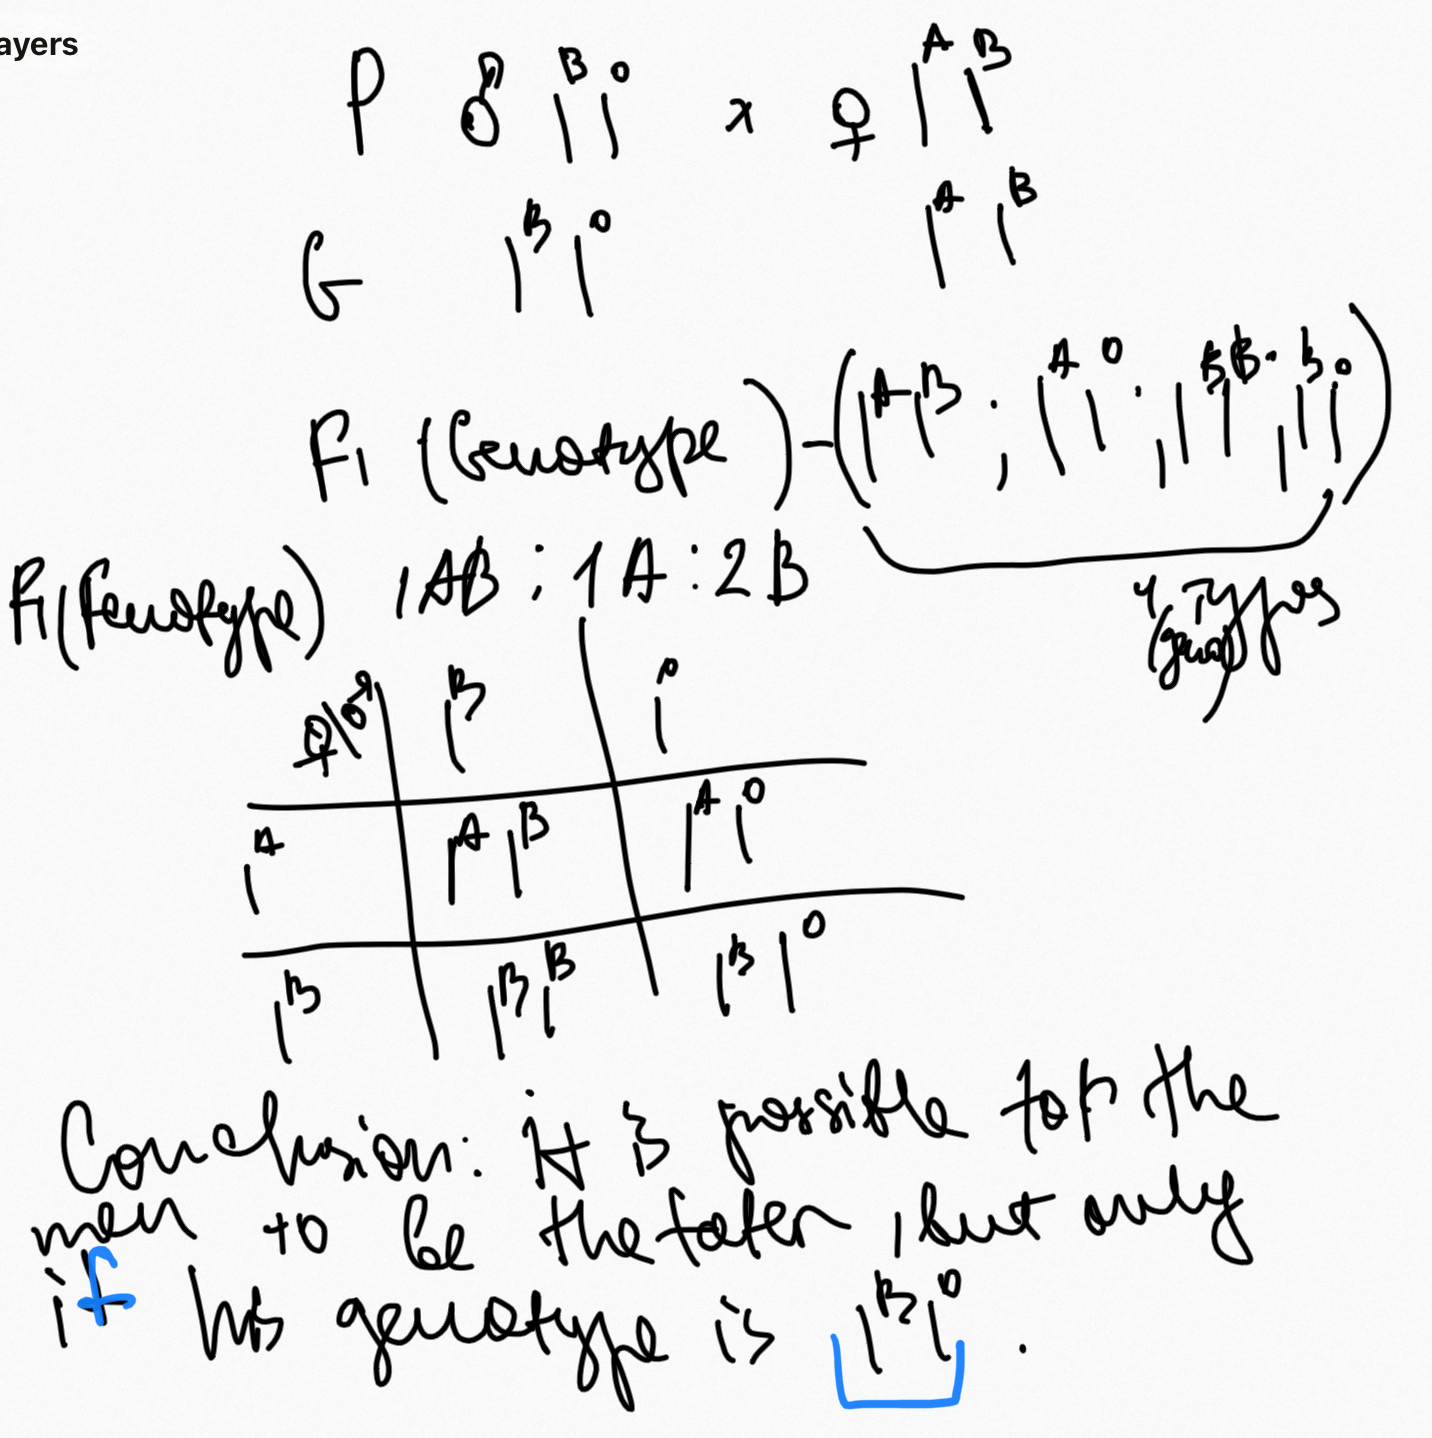 ayers
P ♂ I^B I^O x ♀ I^A I^B
G I^B I^O I^A I^B
F1 (Genotype) - (I^A I^B ; I^A I^O ; I^B I^B ; I^B I^O)
F1 (Fenotype) 1AB : 1A : 2B
4 Types
(geno)
♀\♂ I^B I^O
I^A I^A I^B I^A I^O
I^B I^B I^B I^B I^O
Conclusion: it is possible for the
men to be the fater, but only
if his genotype is I^B I^O.